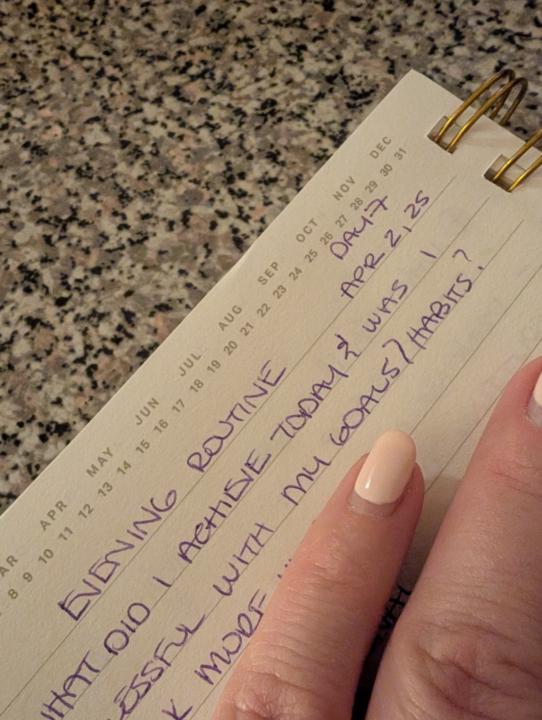 AR APR MAY JUN JUL AUG SEP OCT NOV DEC
8 9 10 11 12 13 14 15 16 17 18 19 20 21 22 23 24 25 26 27 28 29 30 31
DAY 7
EVENING ROUTINE APR 2, 25
WHAT DID I ACHIEVE TODAY & WAS I
MY GOALS / HABITS?
WITH
MORE